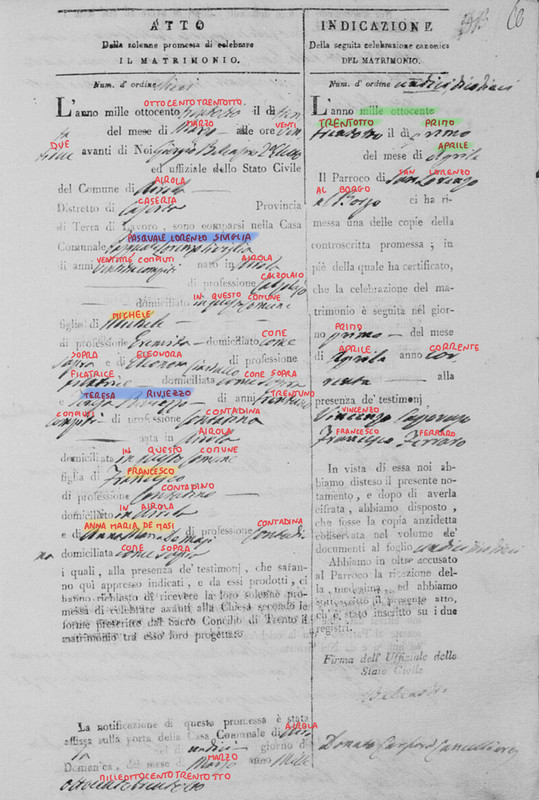 60
ATTO
Della solenne promessa di celebrare
IL MATRIMONIO.
Num. d'ordine
OTTOCENTO TRENTOTTO.
L'anno mille ottocento trentotto il dì
MARZO VENTI
del mese di Marzo alle ore Ven
DUE
tidue avanti di Noi Giorgio
ed uffiziale dello Stato Civile
AIROLA
del Comune di Airola
CASERTA
Distretto di Caserta Provincia
di Terra di Lavoro, sono comparsi nella Casa
PASQUALE LORENZO SIVIGLIA
Comunale Pasquale Lorenzo Siviglia
VENTUNO COMPIUTI AIROLA
di anni ventuno compiti nato in Airola
CALZOLAIO
di professione Calzolajo
IN QUESTO COMUNE
domiciliato in questo Comune
MICHELE
figlio di Michele
COME
di professione Eremita domiciliato come
SOPRA ELEONORA
sopra e di Eleonora di professione
FILATRICE COME SOPRA
filatrice domiciliata come sopra
TERESA RIVIEZZO TRENTUNO
e Teresa Riviezzo di anni trentuno
COMPIUTI CONTADINA
compiti di professione Contadina
AIROLA
nata in Airola
IN QUESTO COMUNE
domiciliata in questo Comune
FRANCESCO
figlia di Francesco
CONTADINO
di professione Contadino
IN AIROLA
domiciliato in Airola
ANNA MARIA DE MASI CONTADINA
e di Anna Maria De Masi di professione Contadi
COME SOPRA
na domiciliata come sopra
i quali, alla presenza de' testimonj, che saranno
qui appresso indicati, e da essi prodotti, ci
hanno richiesto di ricevere la loro solenne pro-
messa di celebrare avanti alla Chiesa secondo le
forme prescritte dal Sacro Concilio di Trento il
matrimonio tra esso loro progettato
La notificazione di questa promessa è stata
AIROLA
affissa sulla porta della Casa Comunale di Airo
la nel dì undici giorno di
MARZO
Domenica, del mese di Marzo anno Mille
MILLEOTTOCENTO TRENTOTTO
ottocento trentotto
INDICAZIONE
Della seguita celebrazione canonica
DEL MATRIMONIO.
Num. d'ordine undici
L'anno mille ottocento
TRENTOTTO PRIMO
trentotto il dì primo
APRILE
del mese di Aprile
SAN LORENZO
Il Parroco di San Lorenzo
AL BORGO
al Borgo ci ha ri-
messa una delle copie della
controscritta promessa; in
piè della quale ha certificato,
che la celebrazione del ma-
trimonio è seguita nel gior-
PRIMO
no primo del mese
APRILE CORRENTE
di Aprile anno cor
rente alla
presenza de' testimonj
VINCENZO
Vincenzo
FRANCESCO FERRARO
Francesco Ferraro
In vista di essa noi ab-
biamo disteso il presente no-
tamento, e dopo di averla
cifrata, abbiamo disposto,
che fosse la copia anzidetta
conservata nel volume de'
documenti al foglio undici
Abbiamo in oltre accusato
al Parroco la ricezione del-
la medesima, ed abbiamo
sottoscritto il presente atto,
ch'è stato inscritto su i due
registri.
Firma dell'Uffiziale dello
Stato Civile
Donato Cancelliere